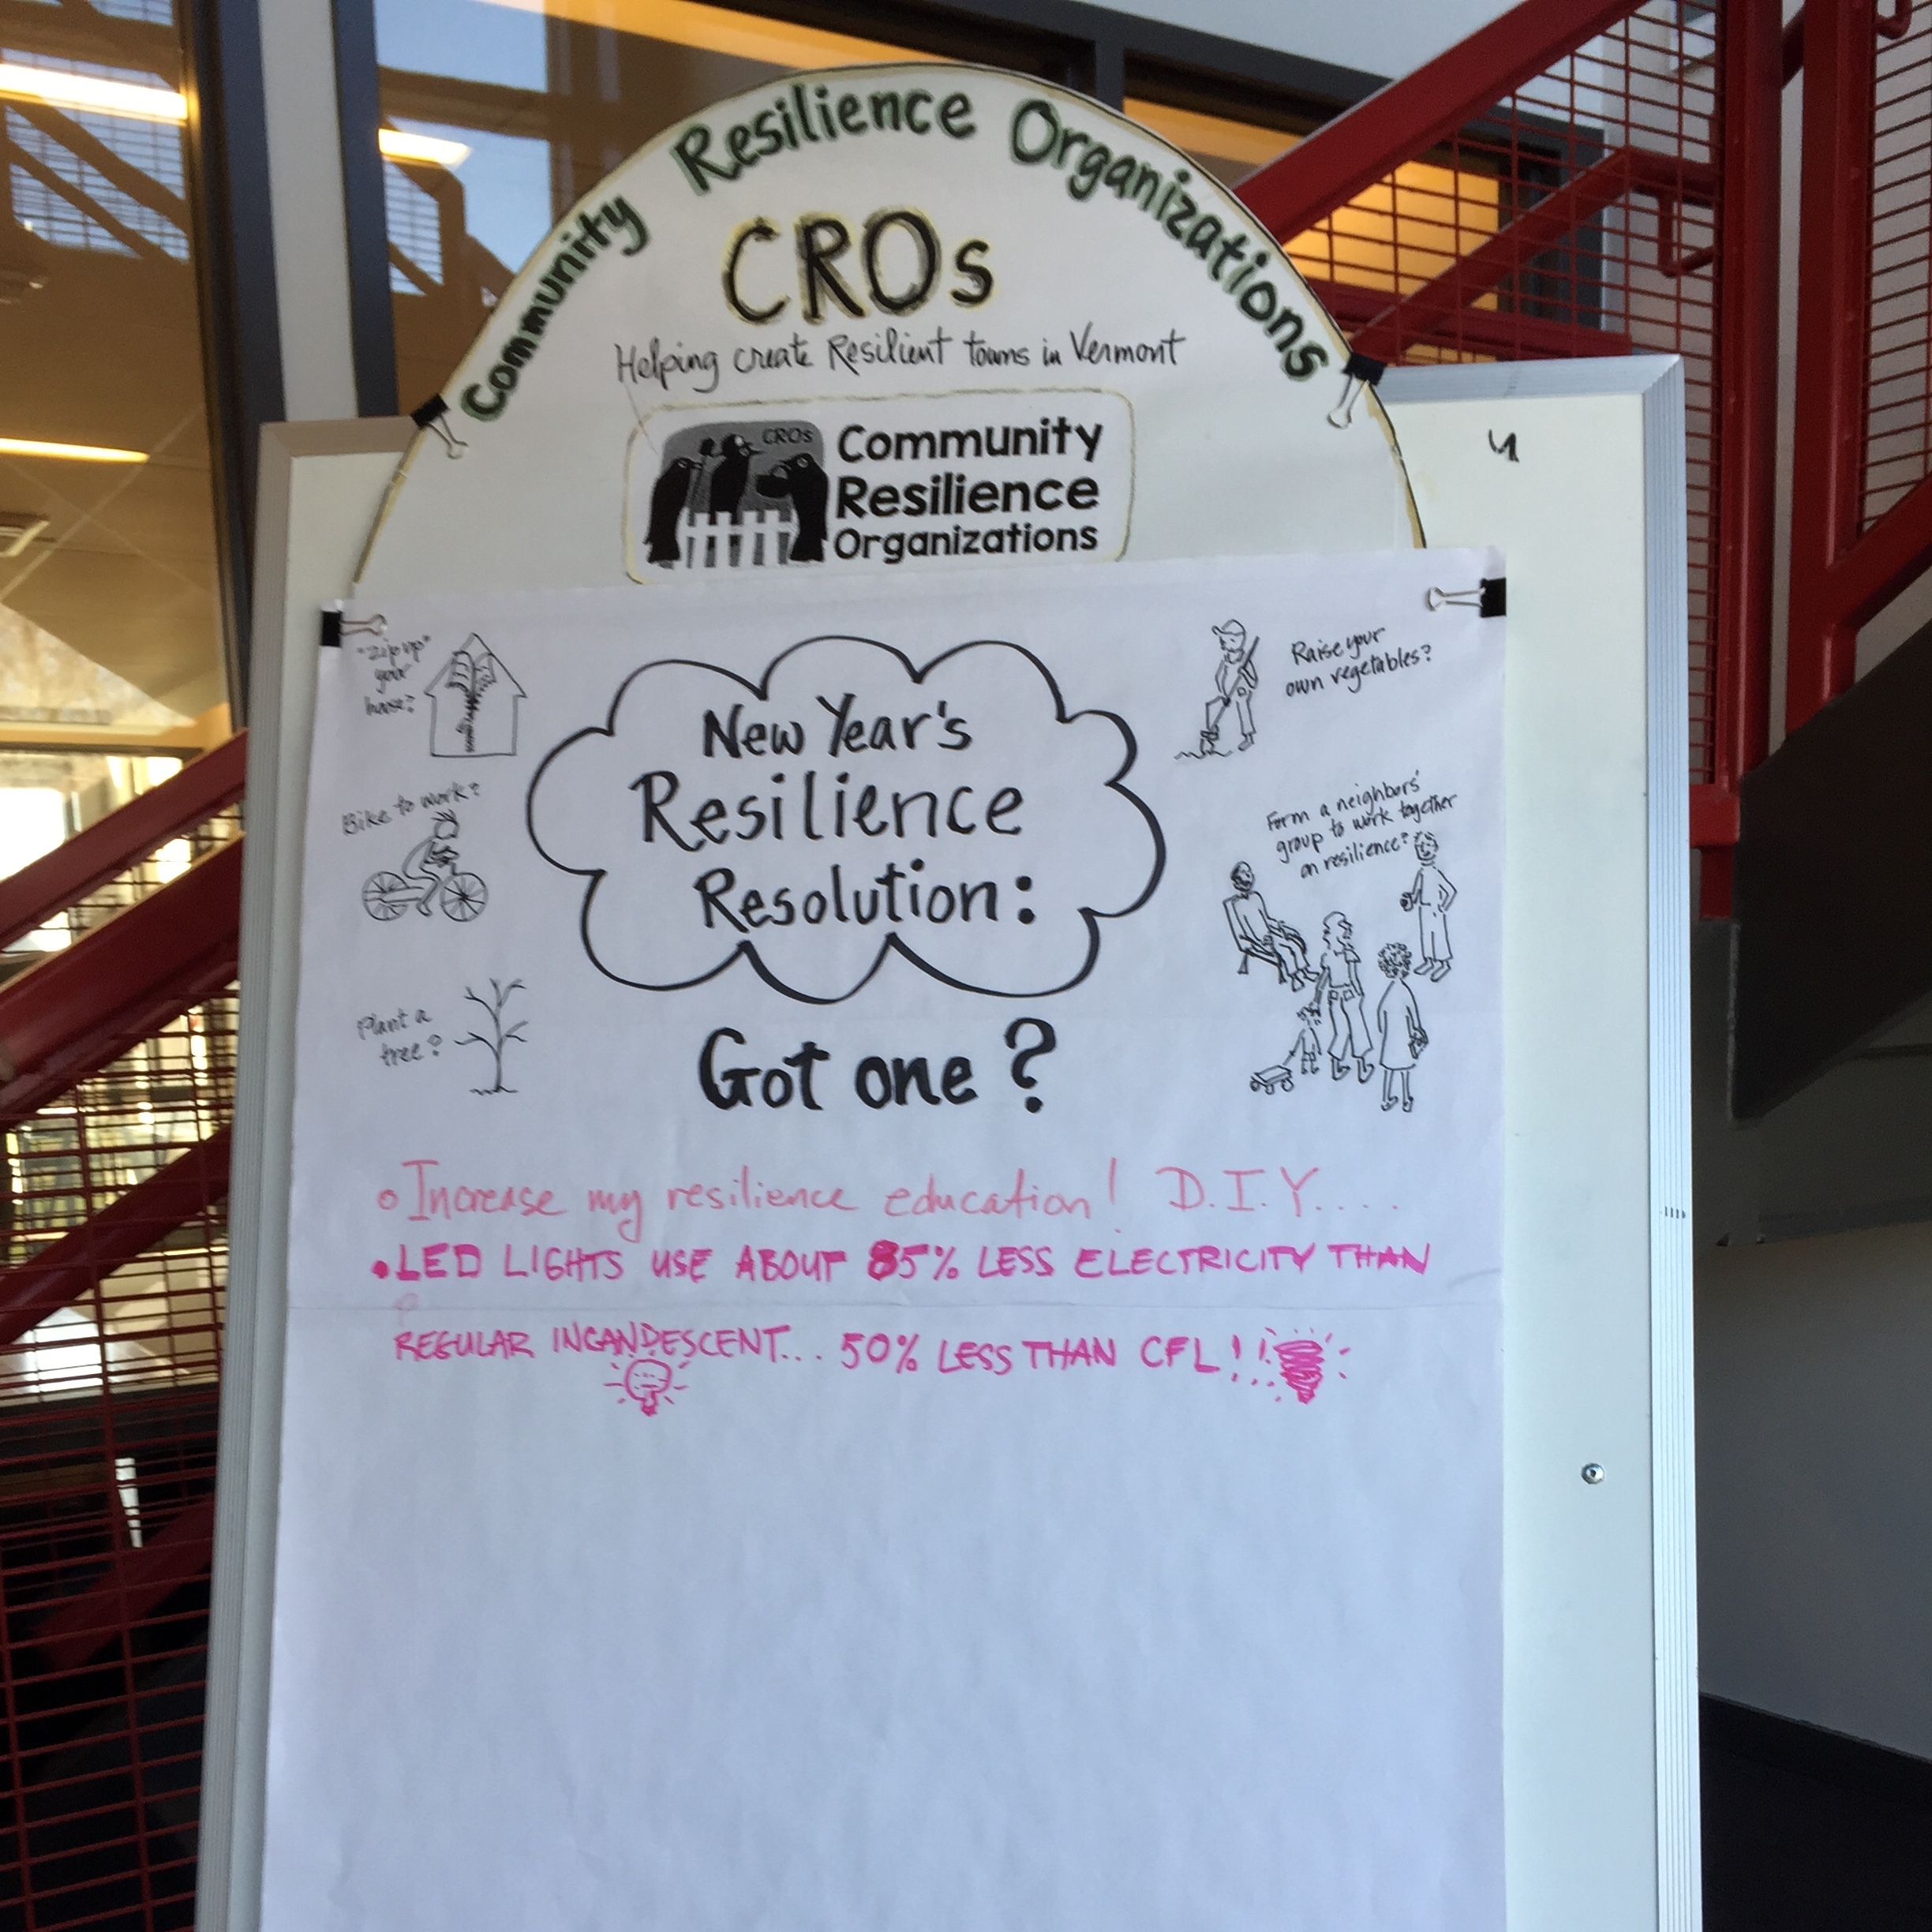 Community Resilience Organizations
CROs
Helping create Resilient towns in Vermont
CROs
Community
Resilience
Organizations
"Zip up"
your
house?
Bike to work?
Plant a
tree?
New Year's
Resilience
Resolution:
Got one?
Raise your
own vegetables?
Form a neighbors'
group to work together
on resilience?
Increase my resilience education! D.I.Y....
• LED LIGHTS USE ABOUT 85% LESS ELECTRICITY THAN
REGULAR INCANDESCENT... 50% LESS THAN CFL!!